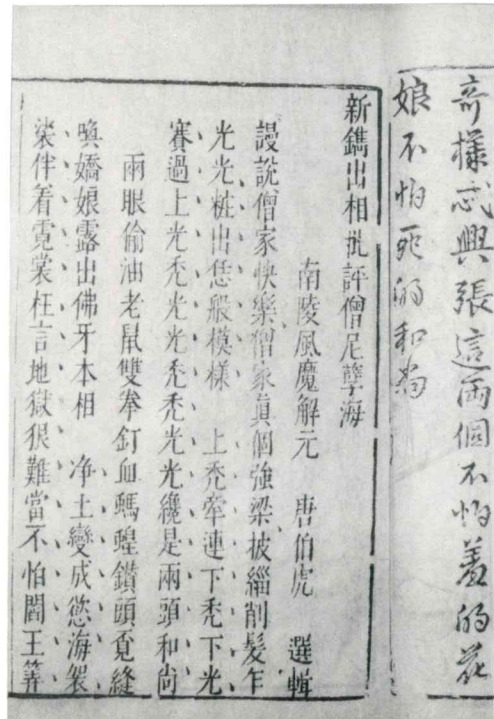 奇樣忒興張這兩個不怕羞的花
娘不怕死的和尚
新鐫出相批評僧尼孽海
南陵風魔解元　唐伯虎　選輯
謾說僧家快樂僧家眞個強梁披緇削髮乍
光光粧出恁般模樣　上禿牽連下禿下光
賽過上光禿光光禿禿光光纔是兩頭和尚
兩眼偷油老鼠雙拳釘血螞蝗鑽頭覔縫
喚嬌娘露出佛牙本相　净土變成慾海袈
裟伴看霓裳枉言地獄狠難當不怕閻王筭